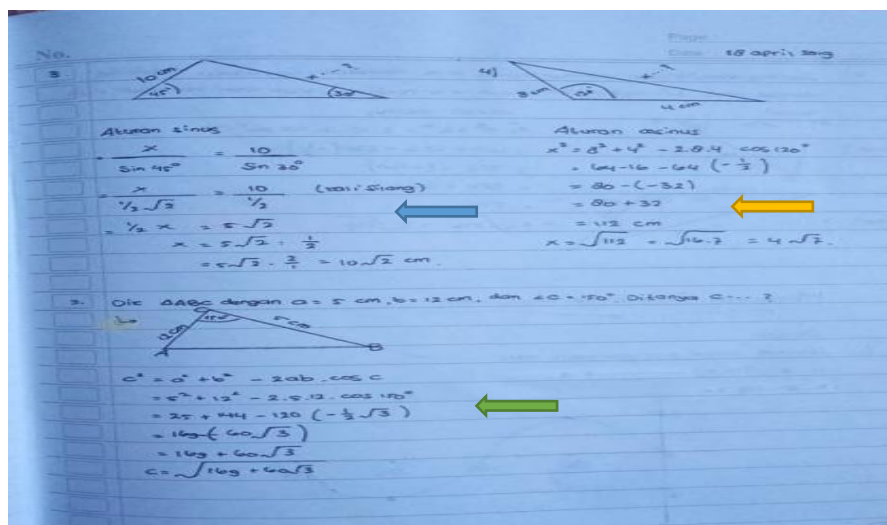 No.
Page
Date 28 april 2019
3
10 cm
x...?
45°
30°
Aturan sinus
x / Sin 45° = 10 / Sin 30°
= x / ½√2 = 10 / ½ (kali silang)
= ½ x = 5√2
x = 5√2 : ½
= 5√2 . 2/1 = 10√2 cm.
4)
x...?
8 cm
120°
4 cm
Aturan cosinus
x² = 8² + 4² - 2.8.4 cos 120°
= 64-16 - 64 (-½)
= 80 - (-32)
= 80 + 32
= 112 cm
x = √112 = √16.7 = 4√7.
Dik ΔABC dengan a = 5 cm, b = 12 cm, dan ∠C = 150° Ditanya c... ?
C
12 cm
150°
5 cm
A
B
c² = a² + b² - 2ab . cos c
= 5² + 12² - 2.5.12. cos 150°
= 25 + 144 - 120 (-½√3)
= 169 - (60√3)
= 169 + 60√3
c = √169 + 60√3